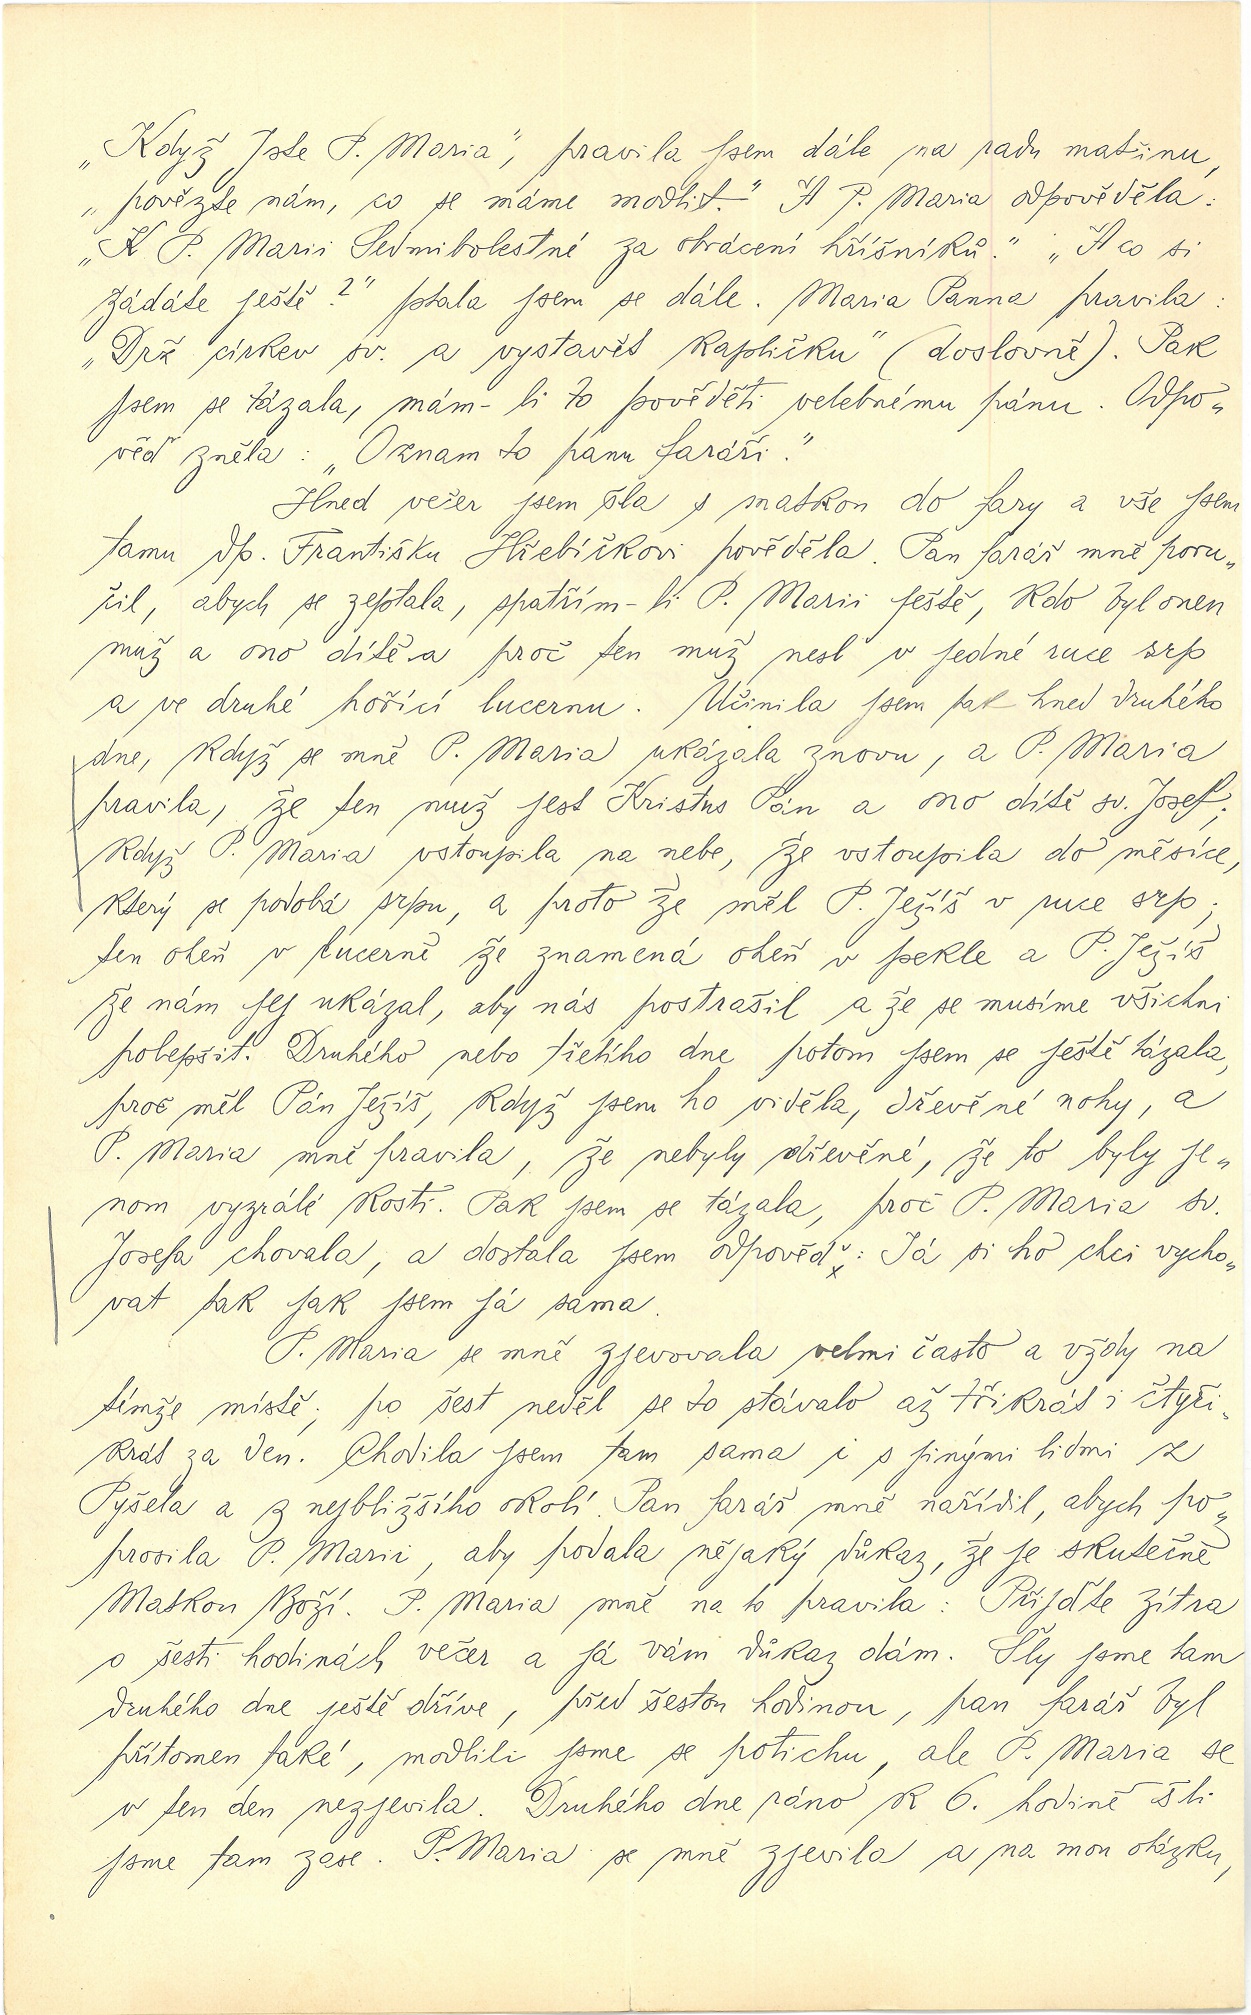 „Když Jste P. Maria", pravila jsem dále na radu matčinu,
„povězte nám, co se máme modlit." A P. Maria odpověděla:
„K P. Marii Sedmibolestné za obrácení hříšníků." „A co si
žádáte ještě?" ptala jsem se dále. Maria Panna pravila:
„Drž církev sv. a vystavět kapličku" (doslovně). Pak
jsem se tázala, mám-li to pověděti velebnému pánu. Odpo„
věď zněla: „Oznam to panu faráři."
Hned večer jsem šla s matkou do fary a vše jsem
tamu dp. Františku Hřebíčkovi pověděla. Pan farář mně poru„
čil, abych se zeptala, spatřím-li P. Marii ještě, kdo byl onen
muž a ono dítě a proč ten muž nesl v jedné ruce srp
a ve druhé hořící lucernu. Učinila jsem tak hned druhého
dne, když se mně P. Maria ukázala znovu, a P. Maria
pravila, že ten muž jest Kristus Pán a ono dítě sv. Josef;
když P. Maria vstoupila na nebe, že vstoupila do měsíce,
který se podobá srpu, a proto že měl P. Ježíš v ruce srp;
ten oheň v lucerně že znamená oheň v pekle a P. Ježíš
že nám jej ukázal, aby nás postrašil a že se musíme všichni
polepšit. Druhého nebo třetího dne potom jsem se ještě tázala,
proč měl Pán Ježíš, když jsem ho viděla, dřevěné nohy, a
P. Maria mně pravila, že nebyly dřevěné, že to byly je„
nom vyzrálé kosti. Pak jsem se tázala, proč P. Maria sv.
Josefa chovala, a dostala jsem odpověď: Já si ho chci vycho„
vat tak jak jsem já sama.
P. Maria se mně zjevovala velmi často a vždy na
témže místě; po šest neděl se to stávalo až třikrát i čtyři„
krát za den. Chodila jsem tam sama i s jinými lidmi z
Pyšela a z nejbližšího okolí. Pan farář mně nařídil, abych po„
prosila P. Marii, aby podala nějaký důkaz, že je skutečně
Matkou Boží. P. Maria mně na to pravila: Přijďte zítra
o šesti hodinách večer a já vám důkaz dám. Šly jsme tam
druhého dne ještě dříve, před šestou hodinou, pan farář byl
přítomen také, modlili jsme se potichu, ale P. Maria se
v ten den nezjevila. Druhého dne ráno k 6. hodině šli
jsme tam zase. P. Maria se mně zjevila a na mou otázku,